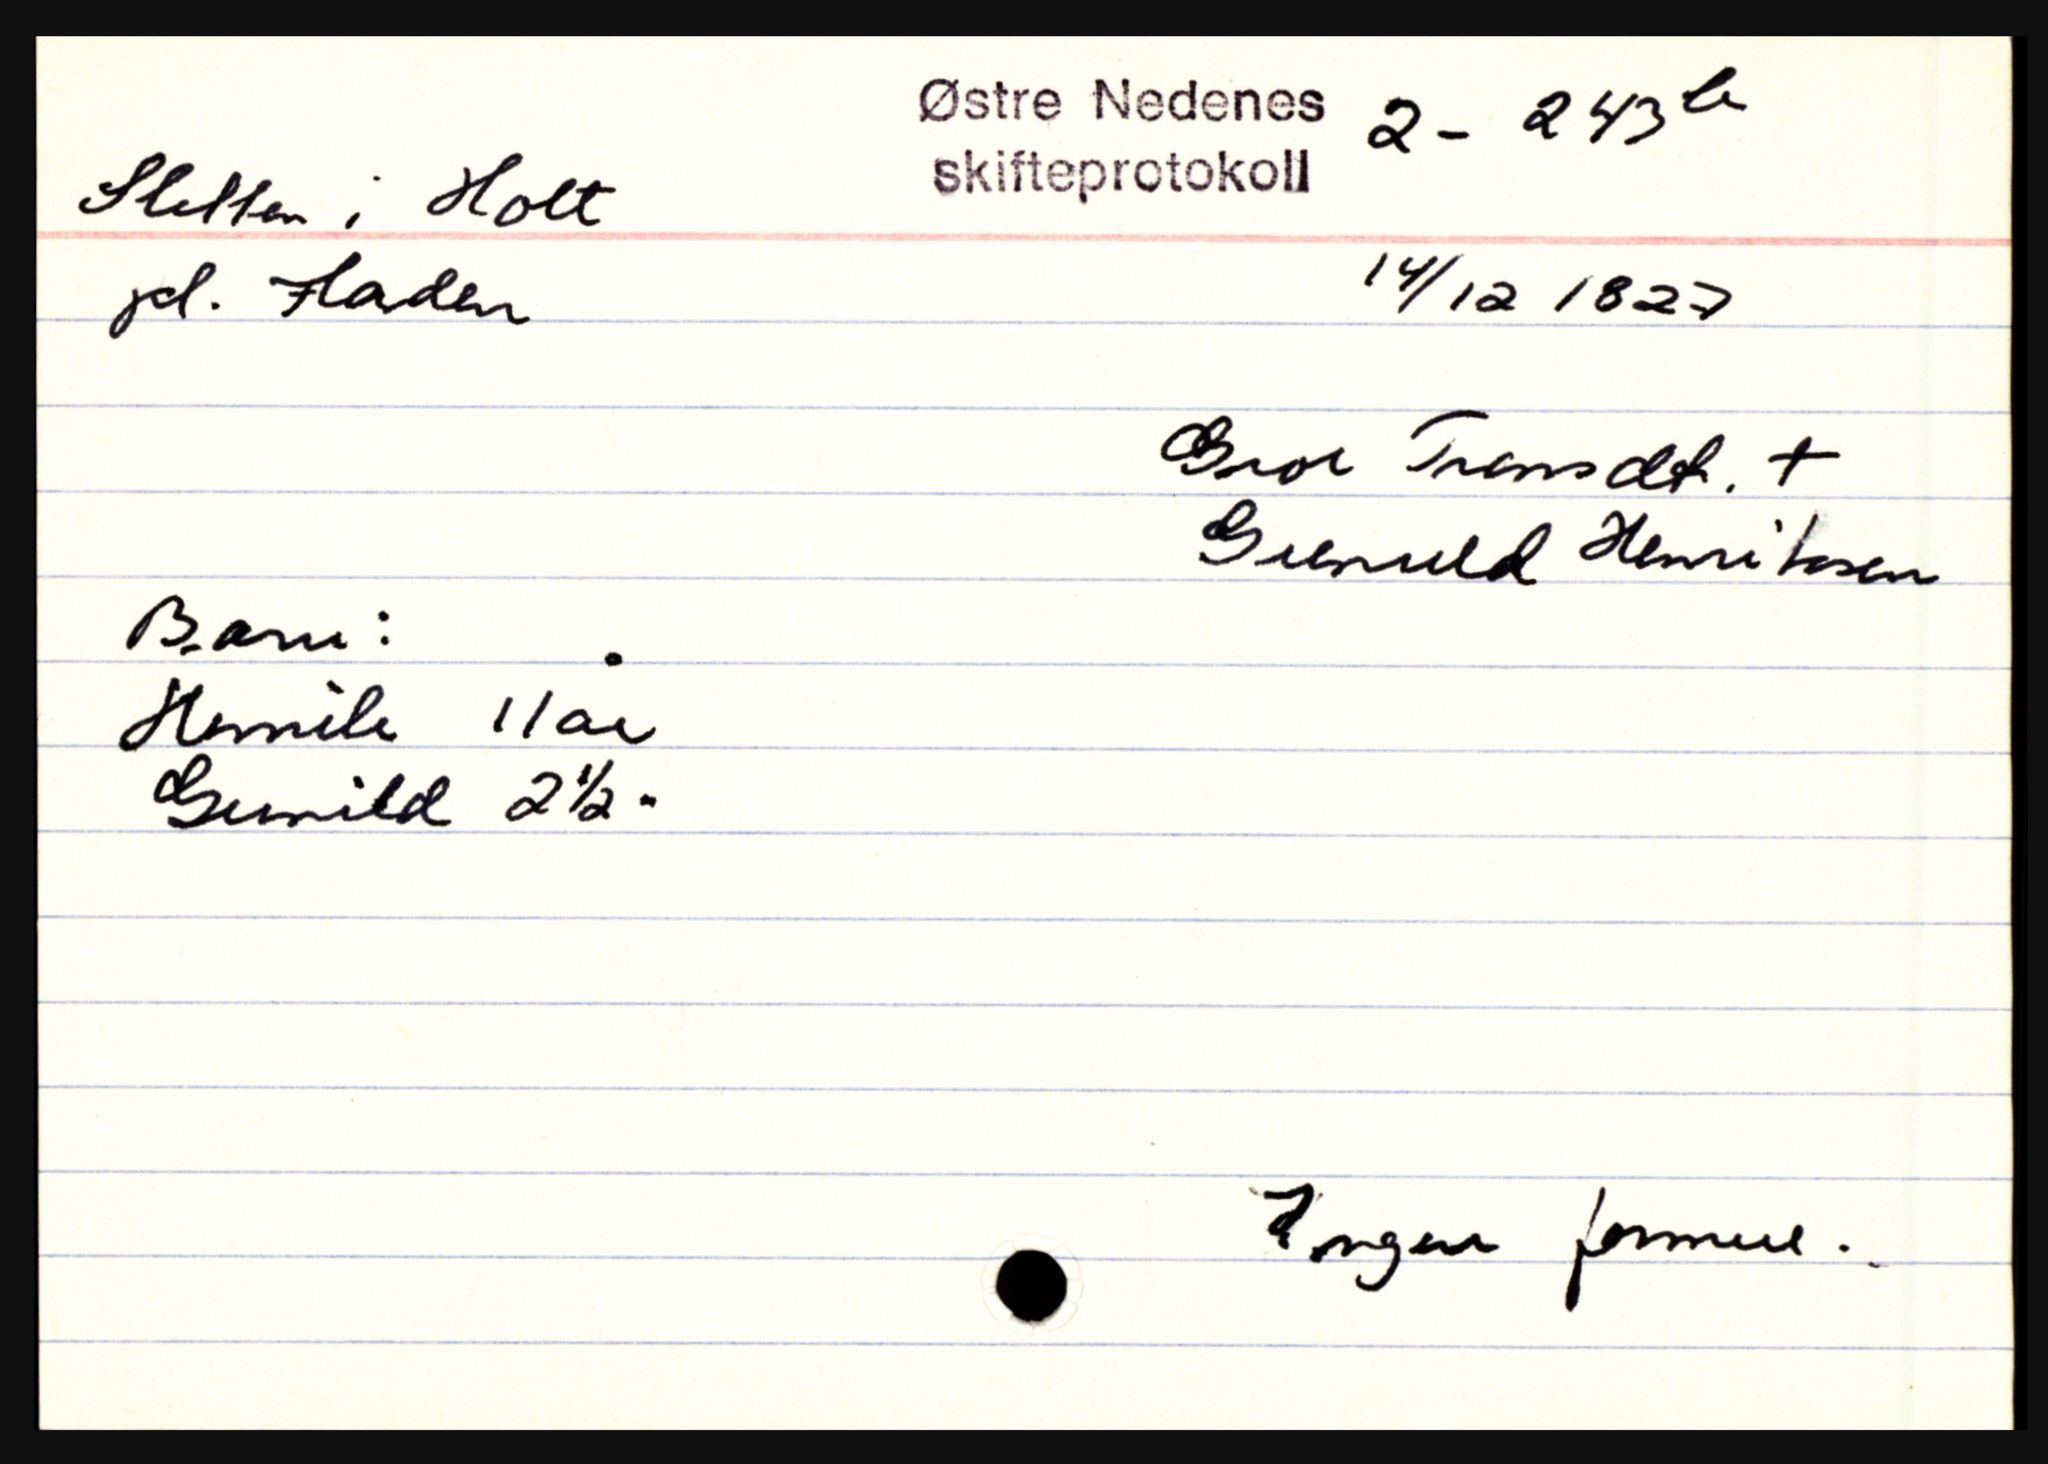 Østre Nedenes 2 - 243 b
skifteprotokoll
Sletten i Holt
pl. Fladen
14/12 1827
Groe Transdt. +
Gunuld Henriksen
Barn:
Henrik 11 år
Gunild 2 1/2 "
Ingen formue.